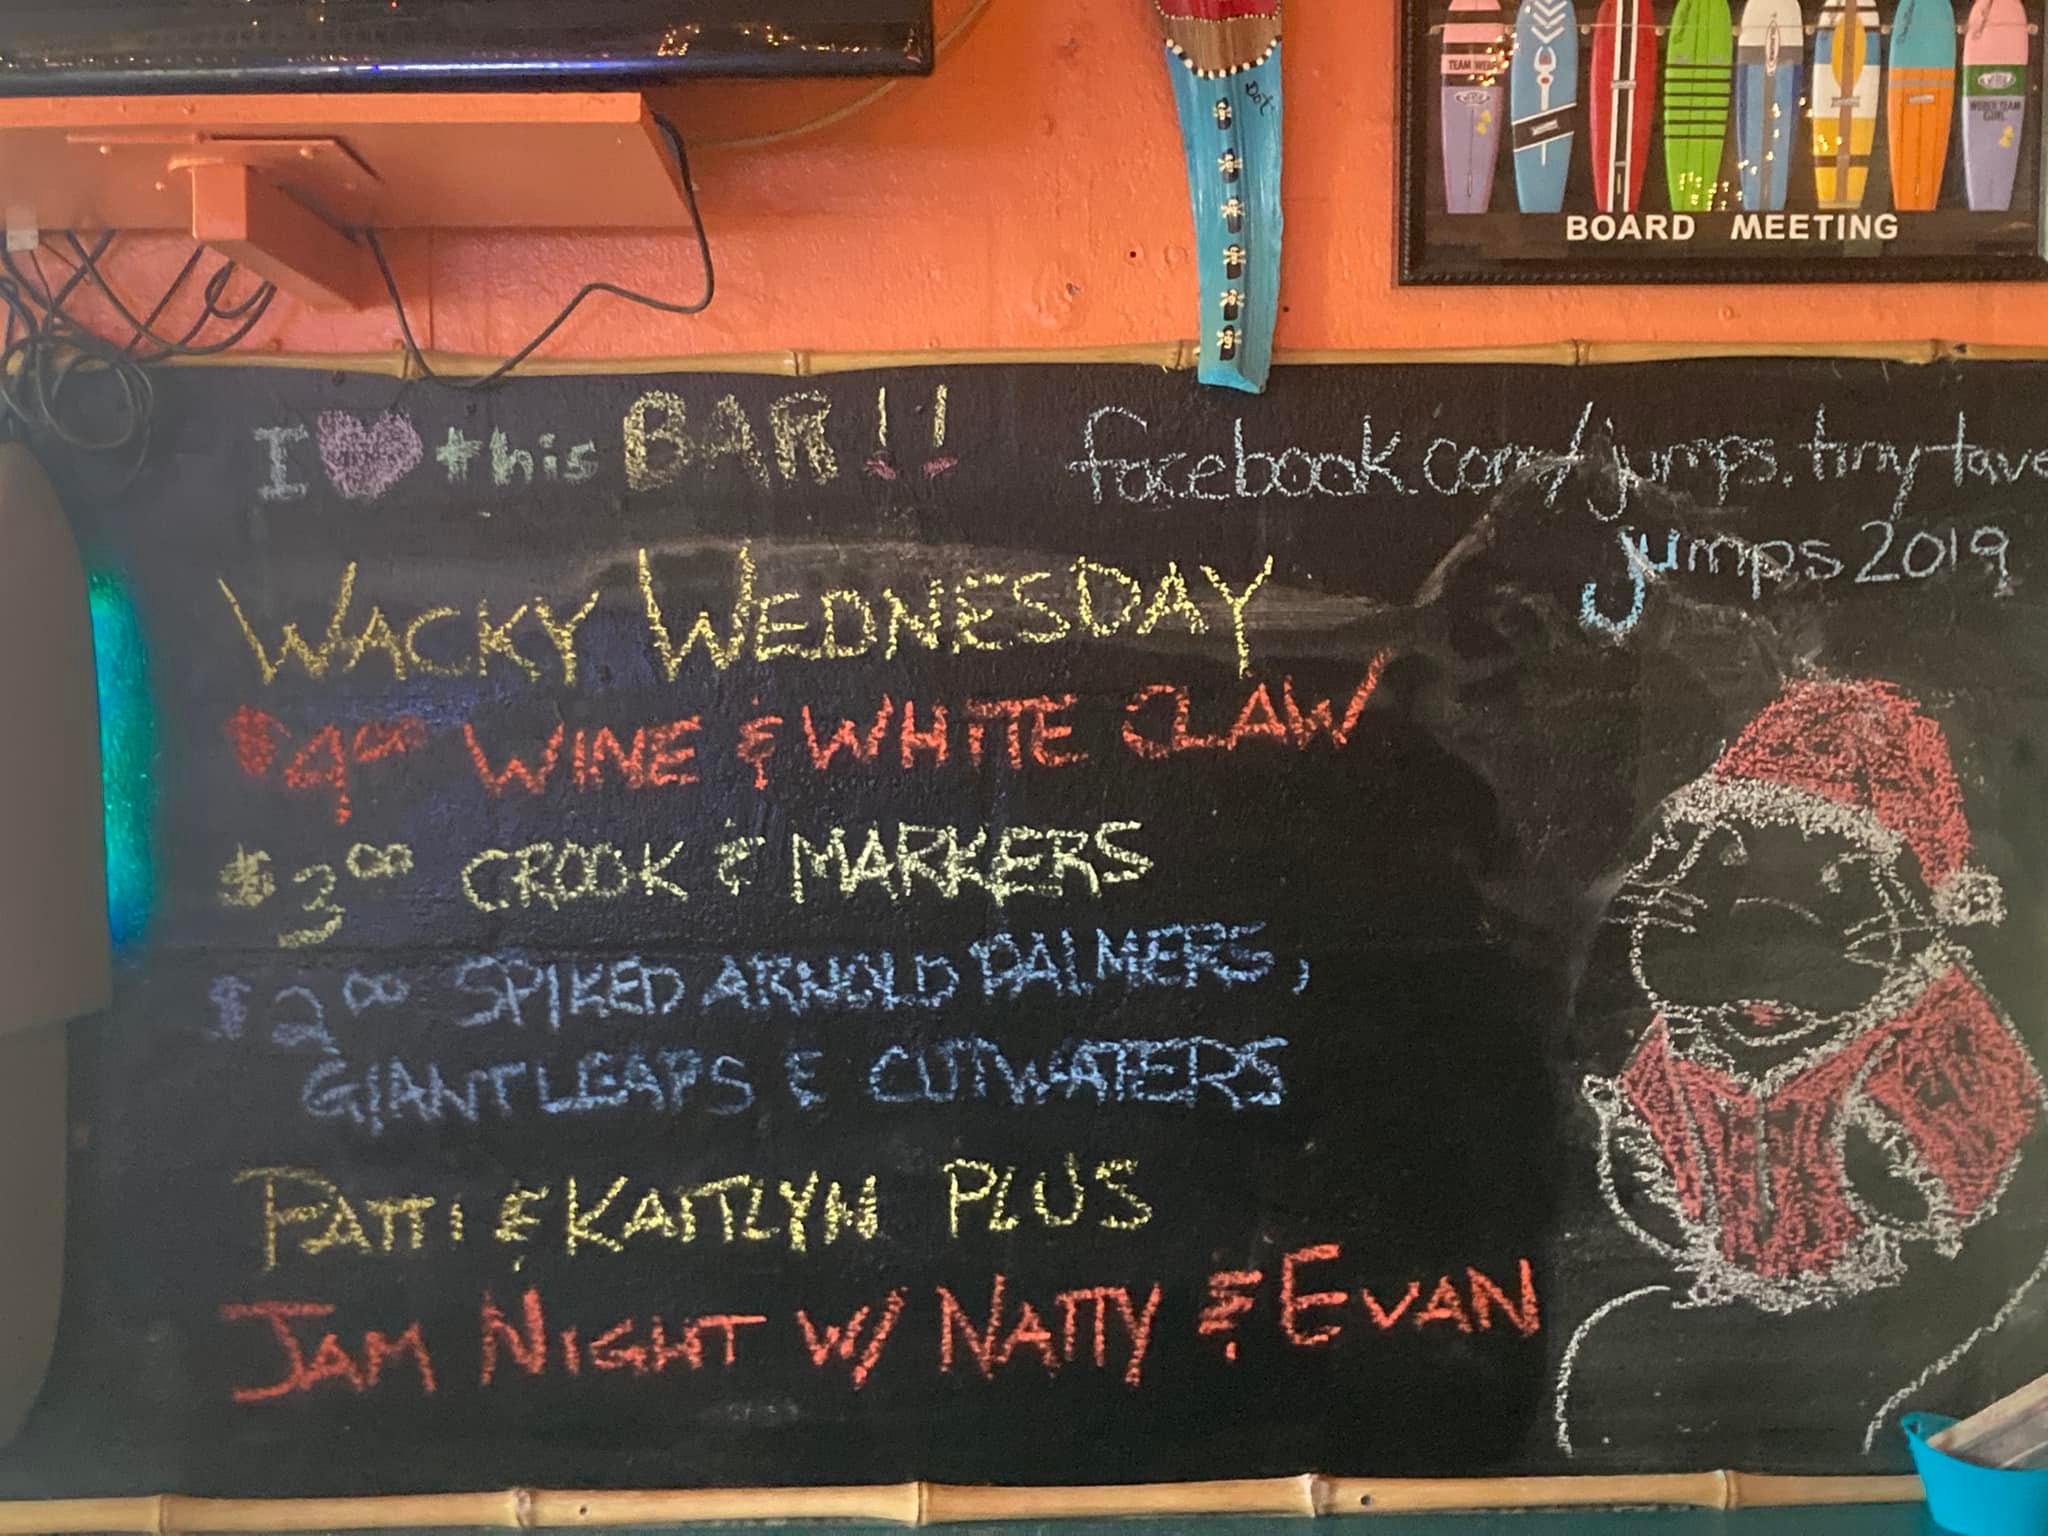 TEAM WEBER
WEBER TEAM
GIRL
Dot
BOARD MEETING
I ♥ this BAR!!
facebook.com/jumps.tiny.tave
jumps2019
WACKY WEDNESDAY
$4.00 WINE & WHITE CLAW
$3.00 CROOK & MARKERS
$2.00 SPIKED ARNOLD PALMERS,
GIANT LEAPS & CUTWATERS
PATTI & KAITLYN PLUS
JAM NIGHT W/ NATTY & EVAN